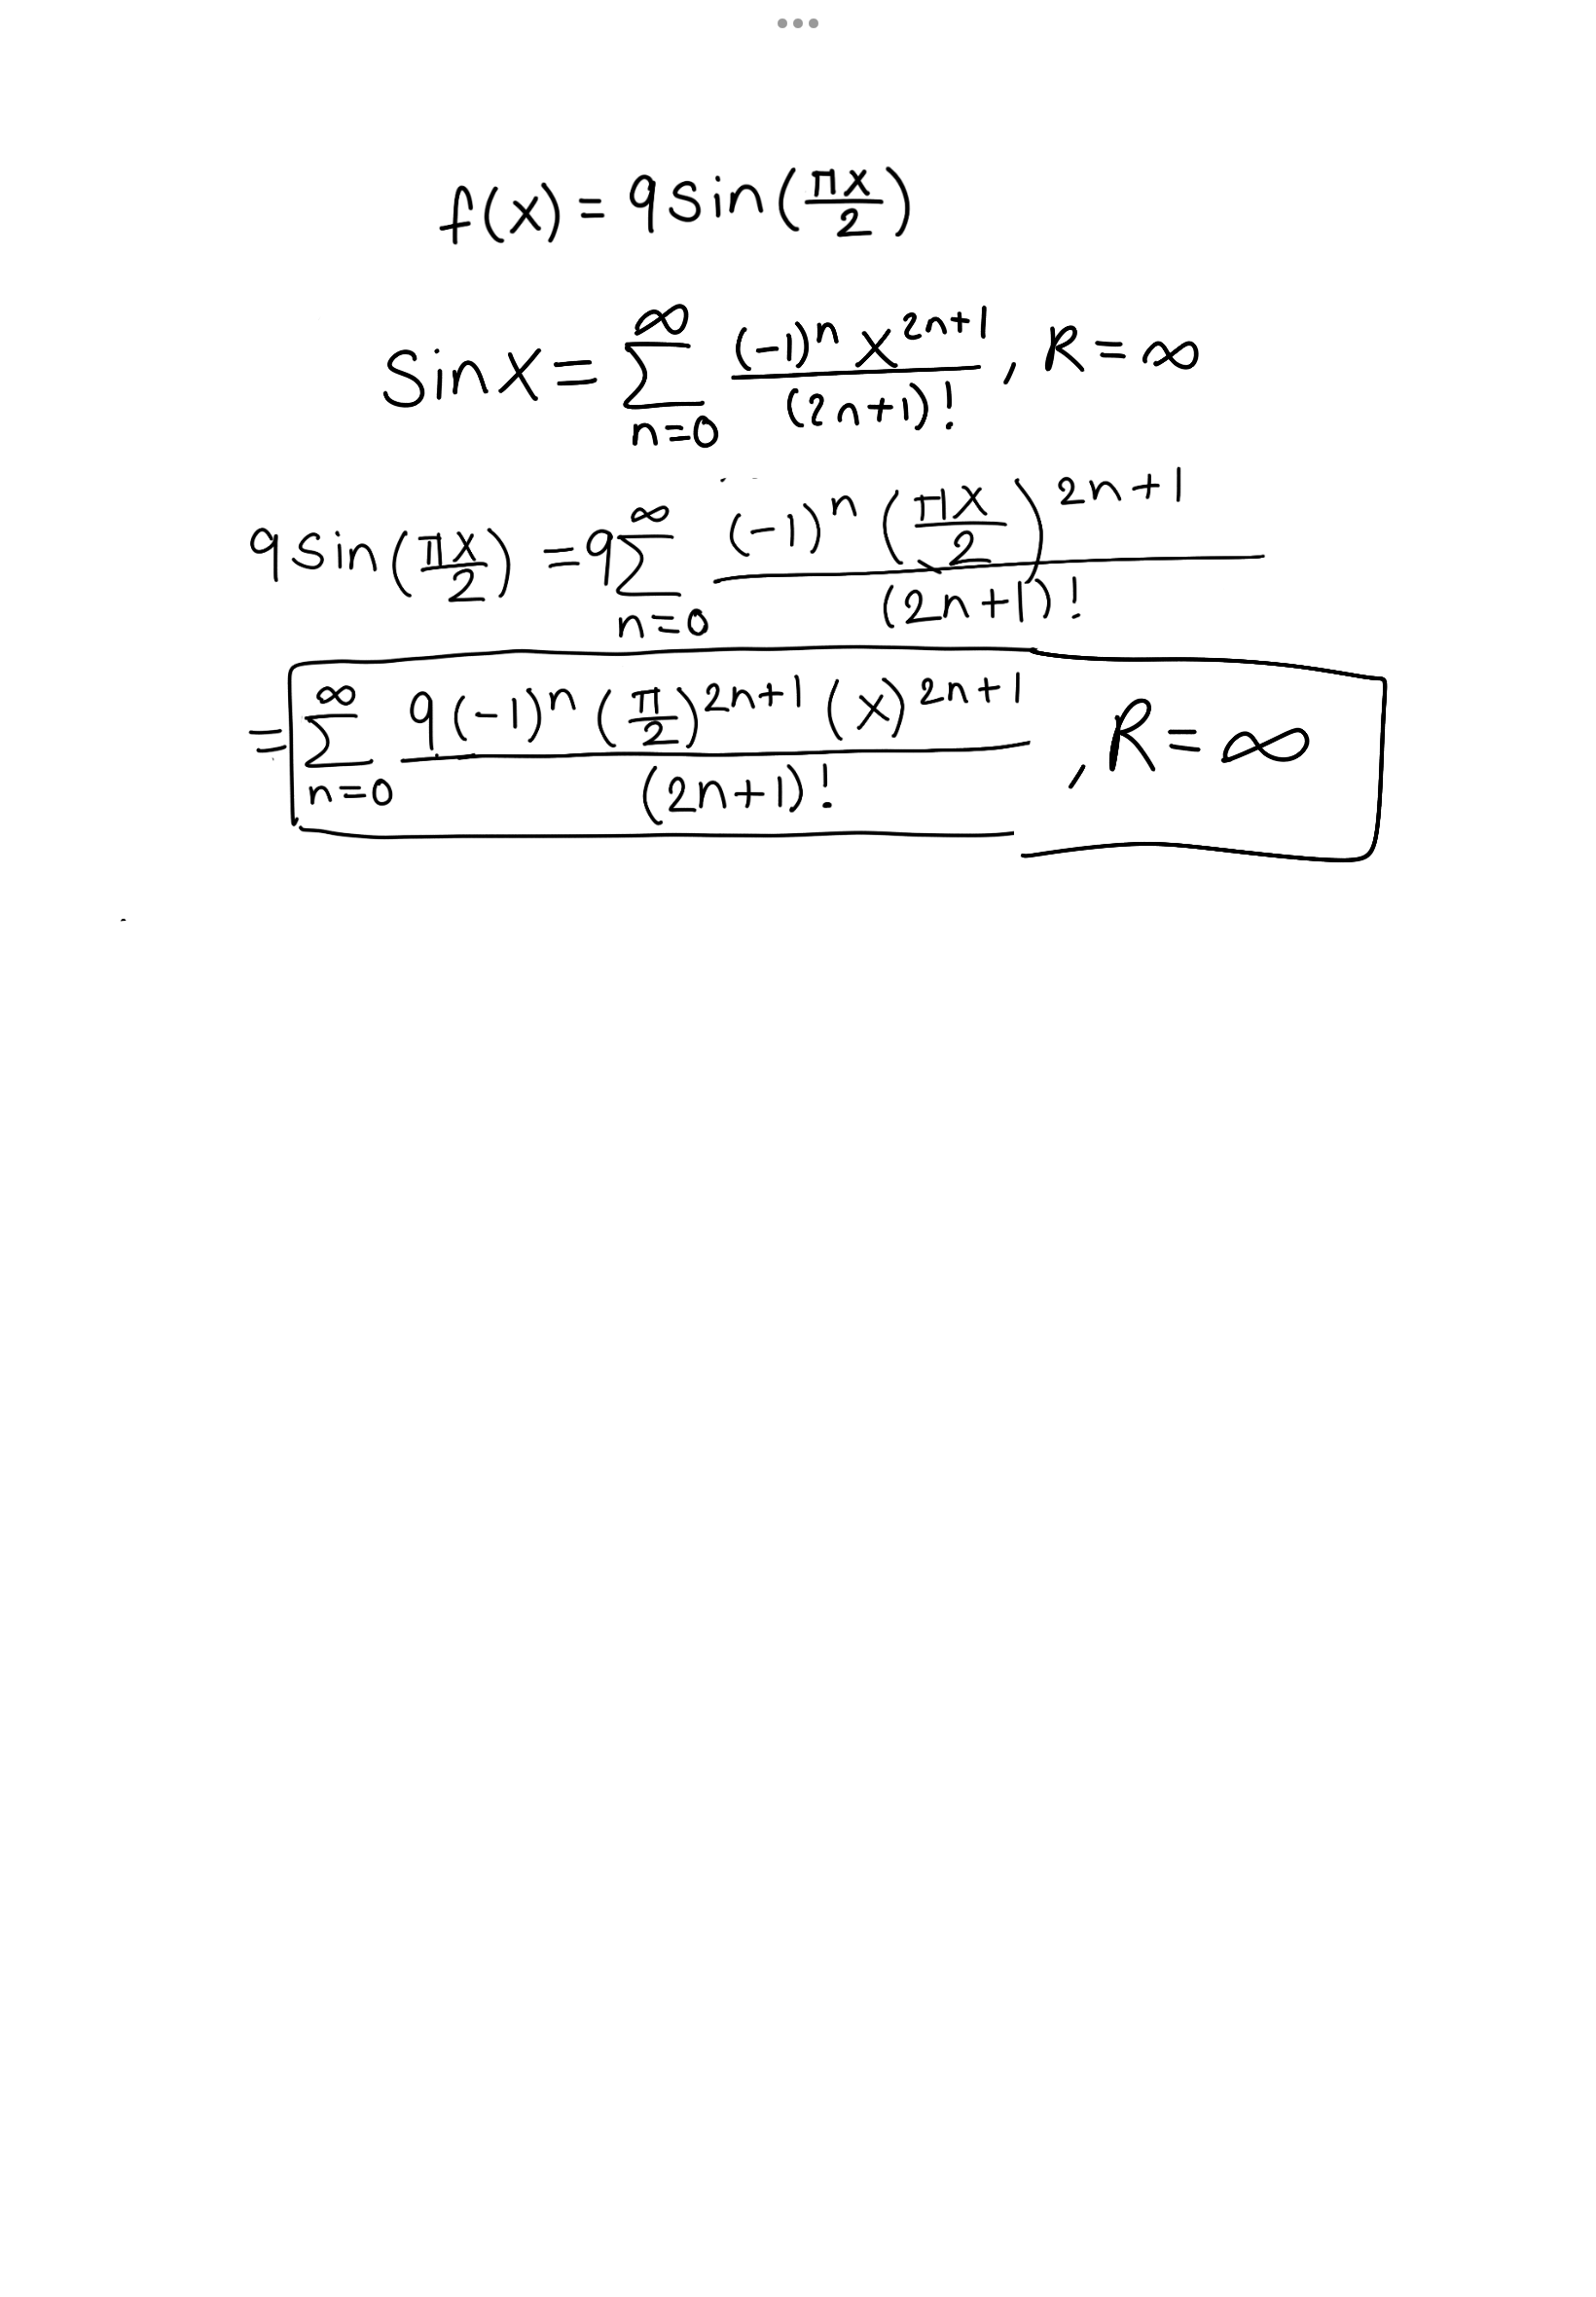 f(x) = 9 sin(πx/2)
sin x = ∑_{n=0}^{∞} (-1)^n x^{2n+1} / (2n+1)! , R = ∞
9 sin(πx/2) = 9 ∑_{n=0}^{∞} (-1)^n (πx/2)^{2n+1} / (2n+1)!
= ∑_{n=0}^{∞} 9 (-1)^n (π/2)^{2n+1} (x)^{2n+1} / (2n+1)! , R = ∞